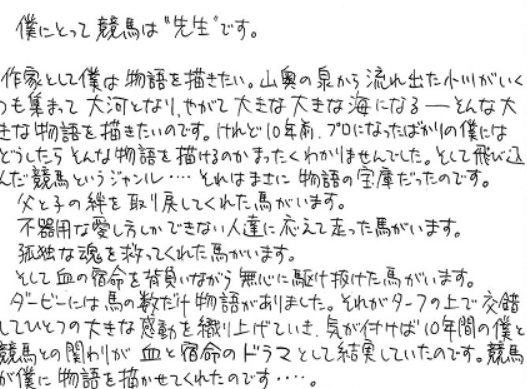 僕にとって競馬は"先生"です。
作家として僕は物語を描きたい。山奥の泉から流れ出た小川がいく
つも集まって大河となり、やがて大きな大きな海になる――そんな大
きな物語を描きたいのです。けれど10年前、プロになったばかりの僕には
どうしたらそんな物語を描けるのかまったくわかりませんでした。そして飛び込
んだ競馬というジャンル‥‥それはまさに物語の宝庫だったのです。
父と子の絆を取り戻してくれた馬がいます。
不器用な愛し方しかできない人達に応えて走った馬がいます。
孤独な魂を救ってくれた馬がいます。
そして血の宿命を背負いながら無心に駆け抜けた馬がいます。
ダービーには馬の数だけ物語がありました。それがターフの上で交錯
してひとつの大きな感動を織り上げていき、気が付けば10年間の僕と
競馬との関わりが血と宿命のドラマとして結実していたのです。競馬
が僕に物語を描かせてくれたのです‥‥。